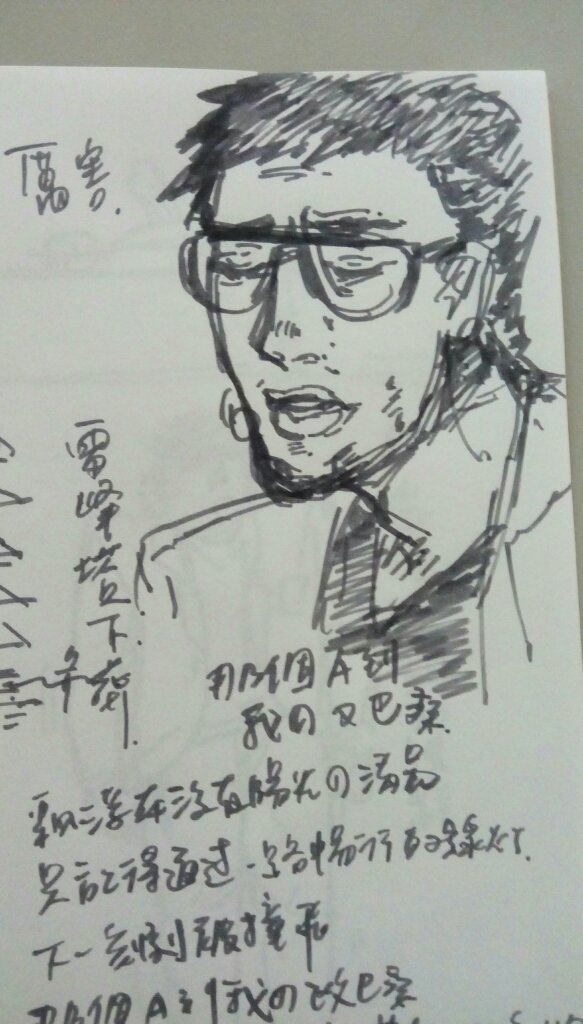 厲害.
雷峰塔下.
那個A到
我の又巴
飄浮在沒有陽光の清晨
只記得通過一路暢行的綠燈.
下一刻被撞飛
那個A到我の巴